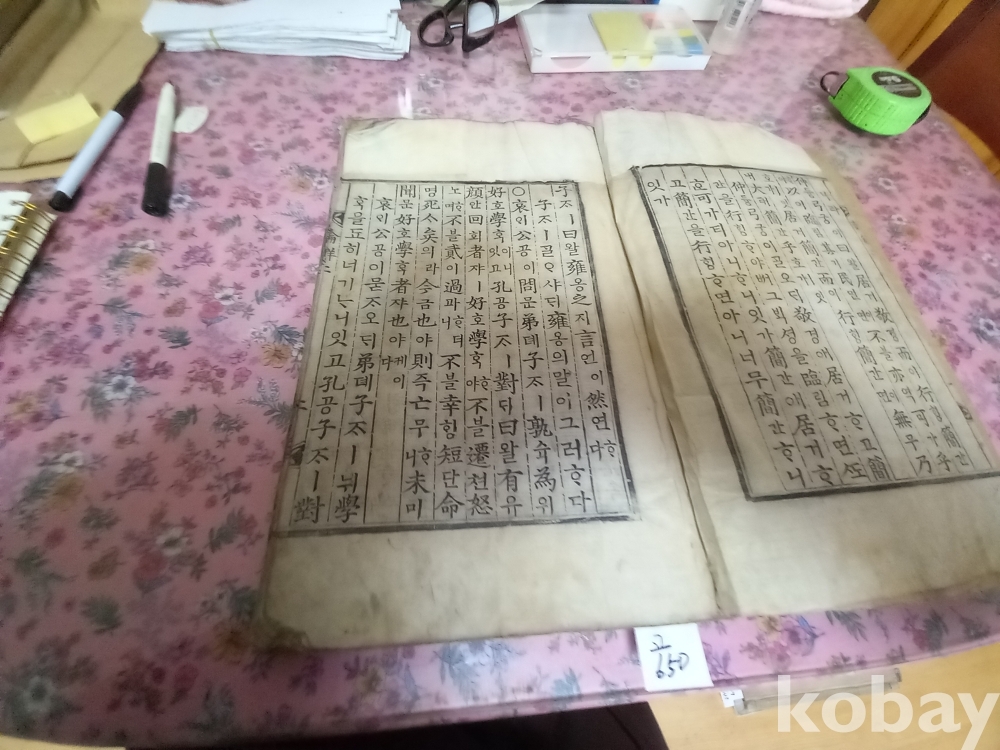 大태簡간乎호ㅣ잇가
仲듕弓궁이ᄀᆞᆯ오ᄃᆡ敬경애居거ᄒᆞ고簡
간을行ᄒᆡᆼᄒᆞ야ᄡᅥ그ᄇᆡᆨ셩을臨림ᄒᆞ면ᄯᅩ
ᄒᆞᆫ可가티아니ᄒᆞ니잇가簡간애居거ᄒᆞ
고簡간을行ᄒᆡᆼᄒᆞ면아니너무簡간ᄒᆞ니
잇가
子ᄌᆞㅣ曰왈雍옹之지言언이然연ᄒᆞ다
子ᄌᆞㅣᄀᆞᆯᄋᆞ샤ᄃᆡ雍옹의말이그러ᄒᆞ다
○哀ᄋᆡ公공이問문弟뎨子ᄌᆞㅣ孰슉為위
好호學ᄒᆞᆨ이니잇고孔공子ᄌᆞㅣ對ᄃᆡ曰왈有유
顔안回회者쟈ㅣ好호學ᄒᆞᆨᄒᆞ야不블遷쳔怒
노ᄒᆞ며不블貳이過과ᄒᆞ더니不블幸ᄒᆡᆼ短단命
명死ᄉᆞ矣의라今금也야則즉亡무ᄒᆞ니未미
聞문好호學ᄒᆞᆨ者쟈也야케이다
哀ᄋᆡ公공이묻ᄌᆞ오ᄃᆡ弟뎨子ᄌᆞㅣ뉘學
ᄒᆞᆨ을됴히너기ᄂᆞ니잇고孔공子ᄌᆞㅣ對
고
650
kobay